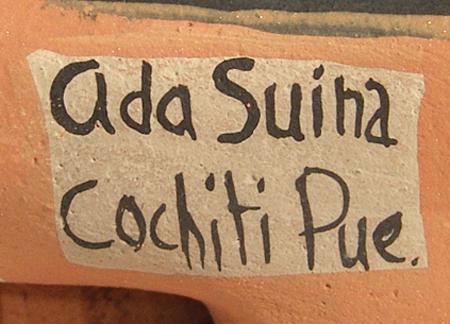 Ada Suina
Cochiti Pue.